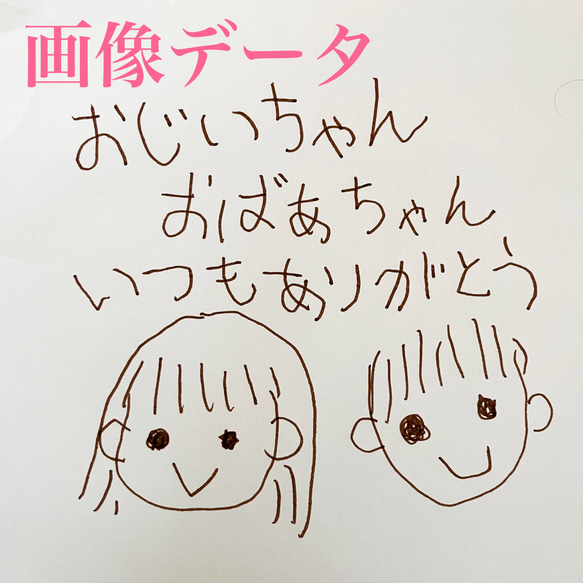 画像データ
おじいちゃん
おばあちゃん
いつもありがとう